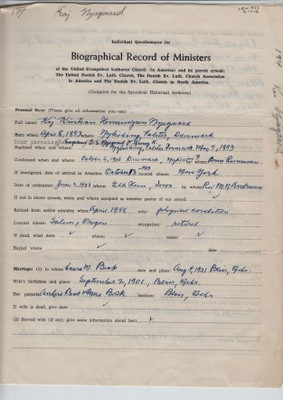 Kaj Nyegaard
Individual Questionnaire for
Biographical Record of Ministers
of the United Evangelical Lutheran Church (in America) and its parent synods:
The United Danish Ev. Luth. Church, The Danish Ev. Luth. Church Association
in America and The Danish Ev. Luth. Church in North America.
(Compiled for the Synodical Historical Archives)
Personal Data: (Please give all information you can)
Full name: Kaj Kristian Hemmingsen Nyegaard
Born when: April 8, 1893 where: Nykobing Falster, Denmark
Your parents
Baptized when and where: Nykobing, Falster Denmark May 7, 1893
Confirmed when and where: October 6, Denmark,
If immigrated, date of arrival in America: October where landed: New York
Date of ordination: June 1923 where: Elk Horn, Iowa by whom: Rev.
If not in above synods, when and where accepted as member pastor of our synod:
Retired from active ministry when: April 1955 why: physical condition
Located where: Salem, Oregon occupation: retired
If dead, what date: where: cause:
Buried where date
Marriage: (1) to whom: Laura M. Beck date and place: Aug 9, 1921 Blair, Nebr.
Wife's birthdate and place: September 2, 1901, Blair, Nebr.
Her parents: Beck location: Blair, Nebr
If wife is dead, give date
(2) Second wife (if any, give same information about her):